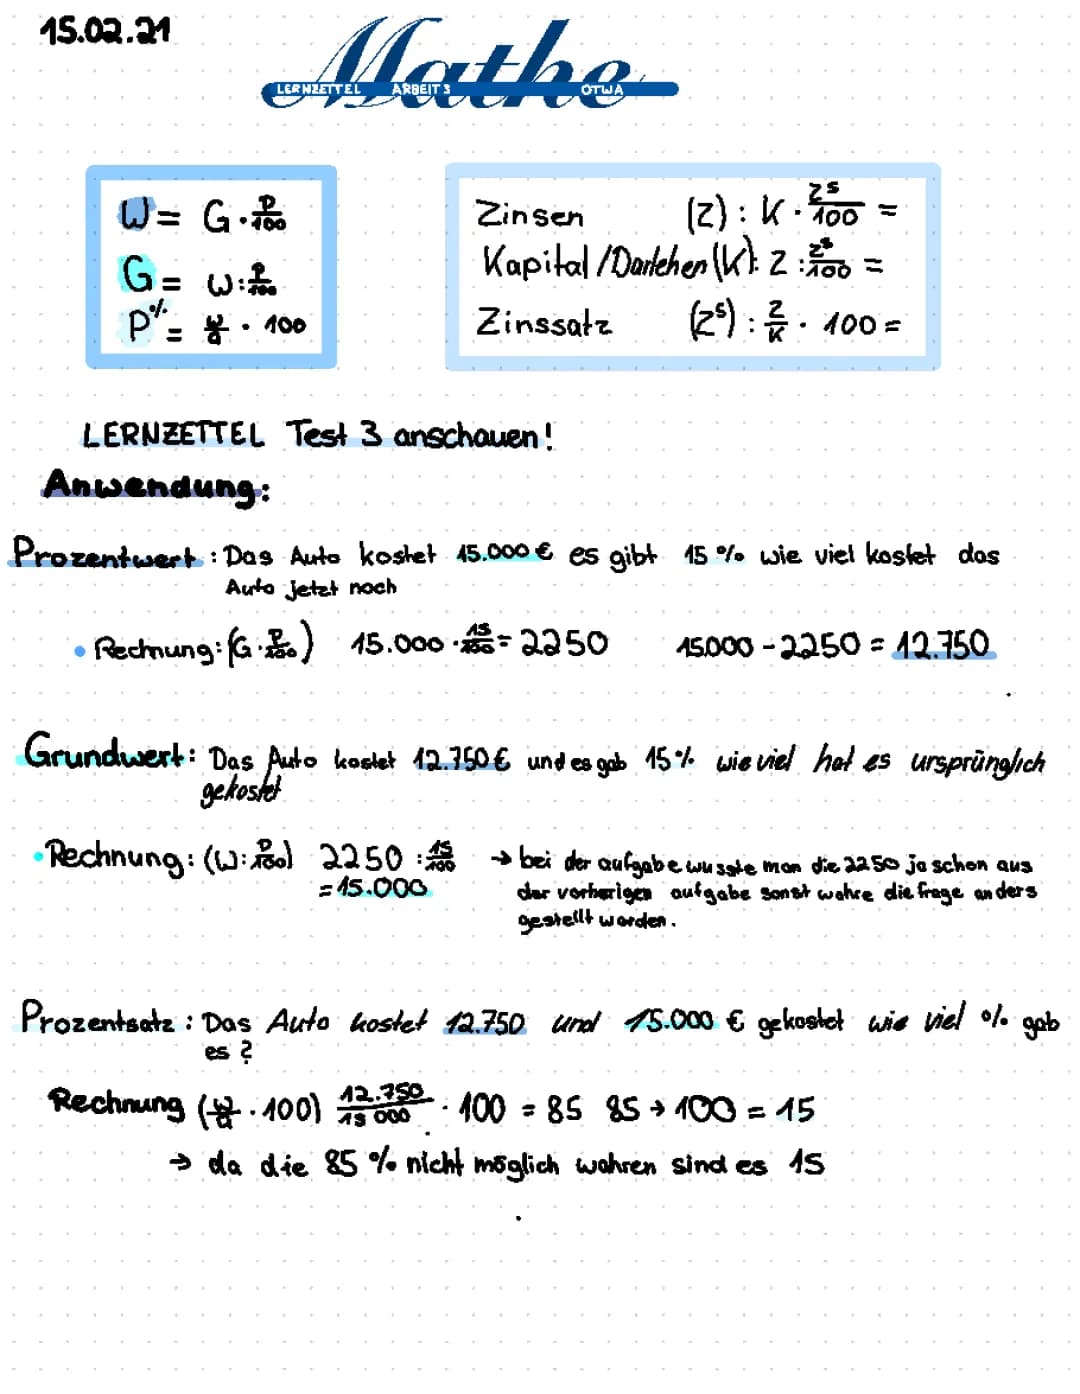 15.02.21
Mathe
LERNZETTEL ARBEIT 3 OTWA
W = G · p/100
G = W : p/100
P% = W/G · 100
Zinsen (Z) : K · Zs/100 =
Kapital/Darlehen (K): Z : Zs/100 =
Zinssatz (Zs) : Z/K · 100 =
LERNZETTEL Test 3 anschauen!
Anwendung:
Prozentwert : Das Auto kostet 15.000 € es gibt 15 % wie viel kostet das
Auto jetzt noch
• Rechnung: (G · P/100) 15.000 · 15/100 = 2250 15000 - 2250 = 12.750
Grundwert: Das Auto kostet 12.750€ und es gab 15% wie viel hat es ursprünglich
gekostet
• Rechnung: (W : P/100) 2250 : 15/100 → bei der aufgabe wusste man die 2250 ja schon aus
= 15.000 der vorherigen aufgabe sonst wahre die frage anders
gestellt worden.
Prozentsatz : Das Auto kostet 12.750 und 15.000 € gekostet wie viel % gab
es ?
Rechnung (W/G · 100) 12.750/15 000 · 100 = 85 85 → 100 = 15
→ da die 85 % nicht möglich wahren sind es 15